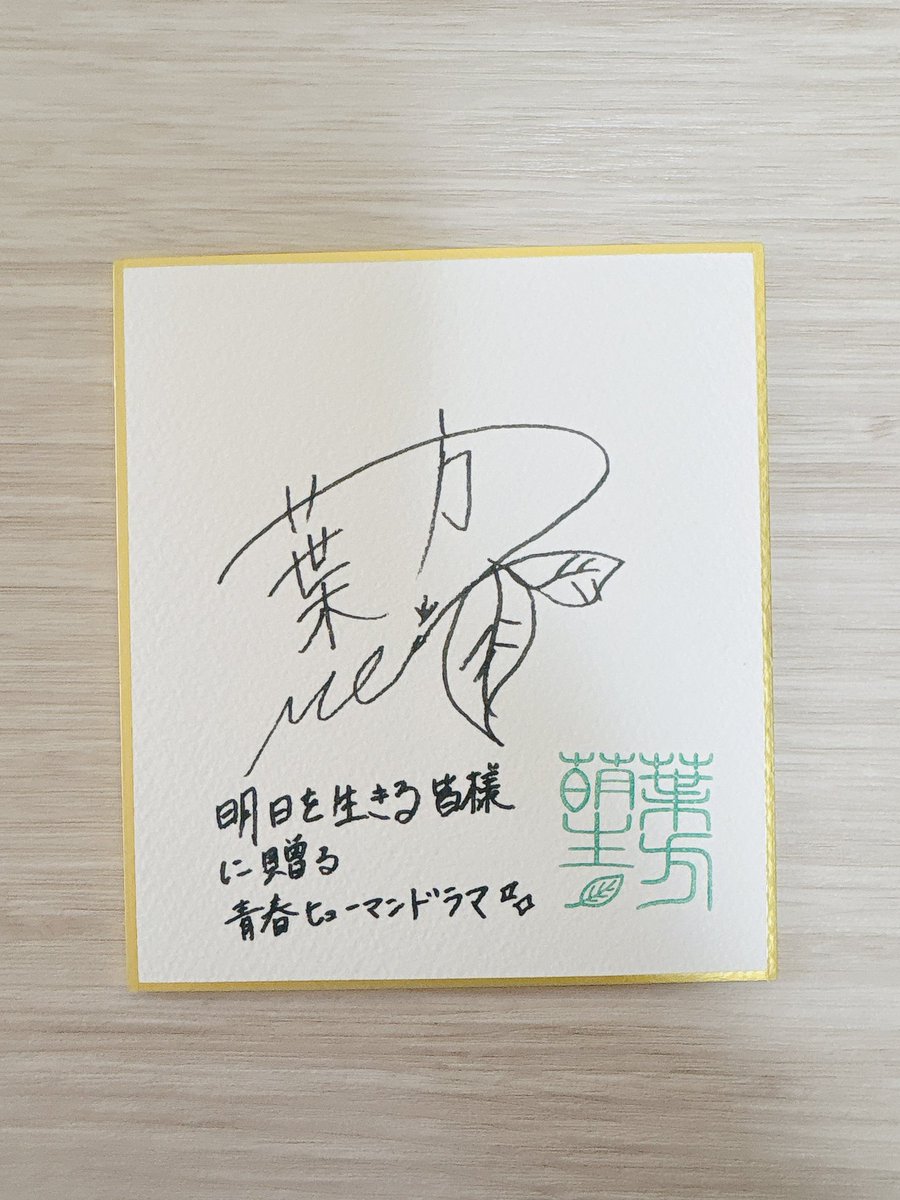 葉方
明日を生きる皆様
に贈る
青春ヒューマンドラマ
葉方
萌生